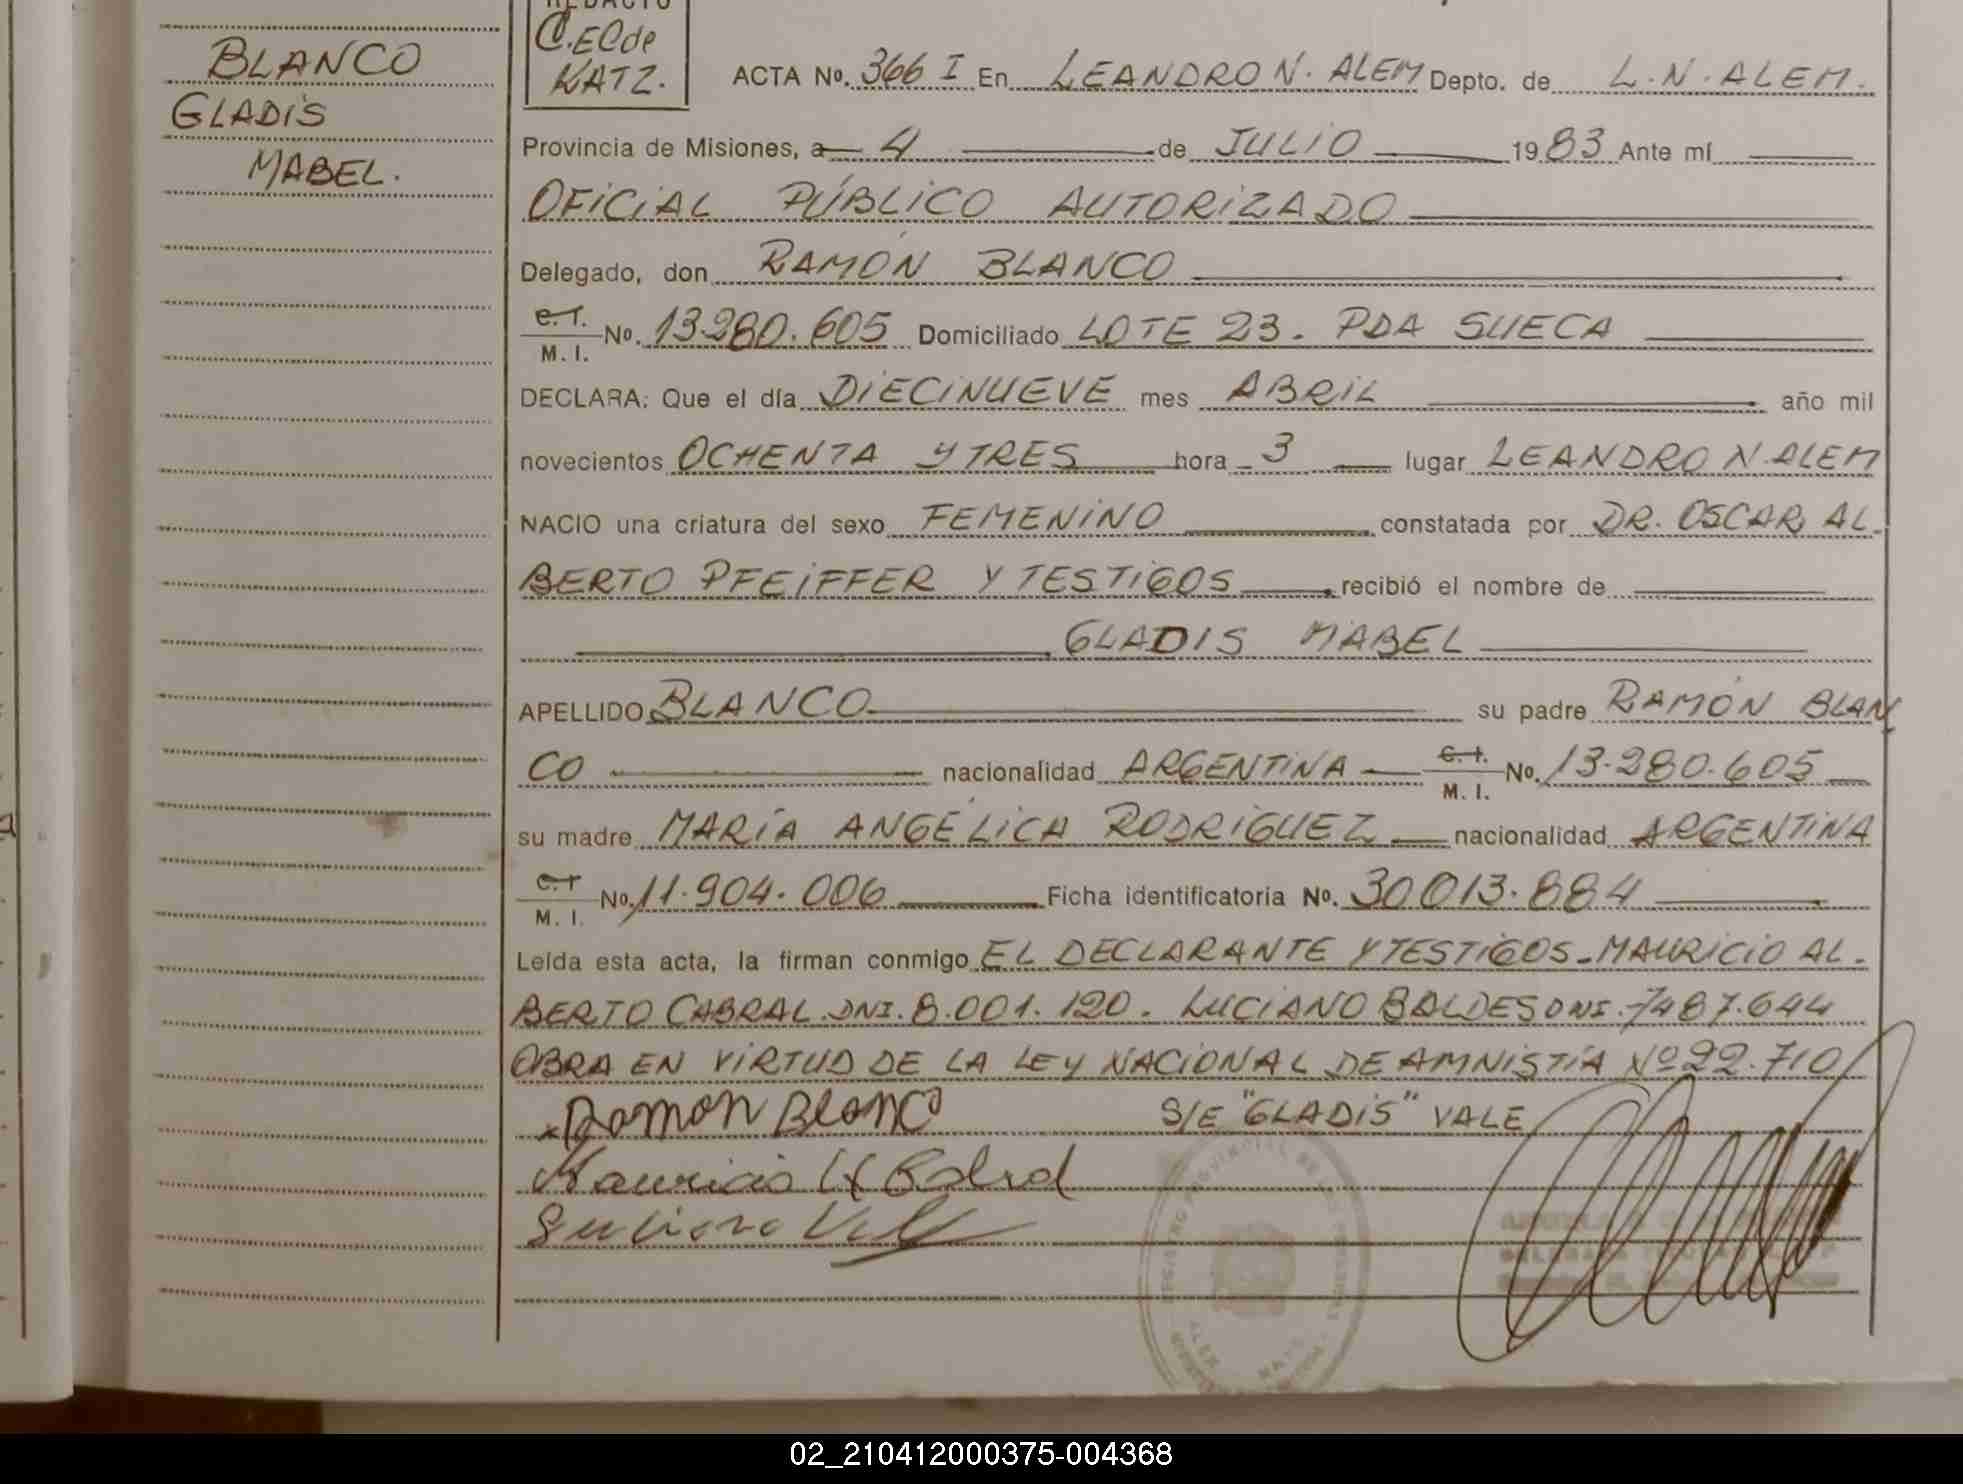 BLANCO
GLADIS
MABEL.
REDACTO
C. EL de
KATZ.
ACTA No. 366 I En LEANDRO N. ALEM Depto. de L.N. ALEM.
Provincia de Misiones, a 4 de JULIO 1983 Ante mí
OFICIAL PÚBLICO AUTORIZADO
Delegado, don RAMÓN BLANCO
C.I. M.I. No. 13.280.605 Domiciliado LOTE 23. PDA SUECA
DECLARA: Que el día DIECINUEVE mes ABRIL año mil
novecientos OCHENTA Y TRES hora 3 lugar LEANDRO N. ALEM
NACIO una criatura del sexo FEMENINO constatada por DR. OSCAR AL-
BERTO PFEIFFER Y TESTIGOS recibió el nombre de
GLADIS MABEL
APELLIDO BLANCO su padre RAMÓN BLAN
CO nacionalidad ARGENTINA C.I. M.I. No. 13.280.605
su madre MARÍA ANGÉLICA RODRIGUEZ nacionalidad ARGENTINA
C.I. M.I. No. 11.904.006 Ficha identificatoria No. 30013.884
Leída esta acta, la firman conmigo EL DECLARANTE Y TESTIGOS-MAURICIO AL-
BERTO CABRAL.DNI.8.001.120. LUCIANO BALDES DNI.7487.644
OBRA EN VIRTUD DE LA LEY NACIONAL DE AMNISTÍA Nº 22.710
Ramon Blanco S/E "GLADIS" VALE
Mauricio
02_210412000375-004368